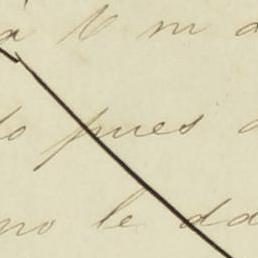 á V m a
lo pues a
no le da